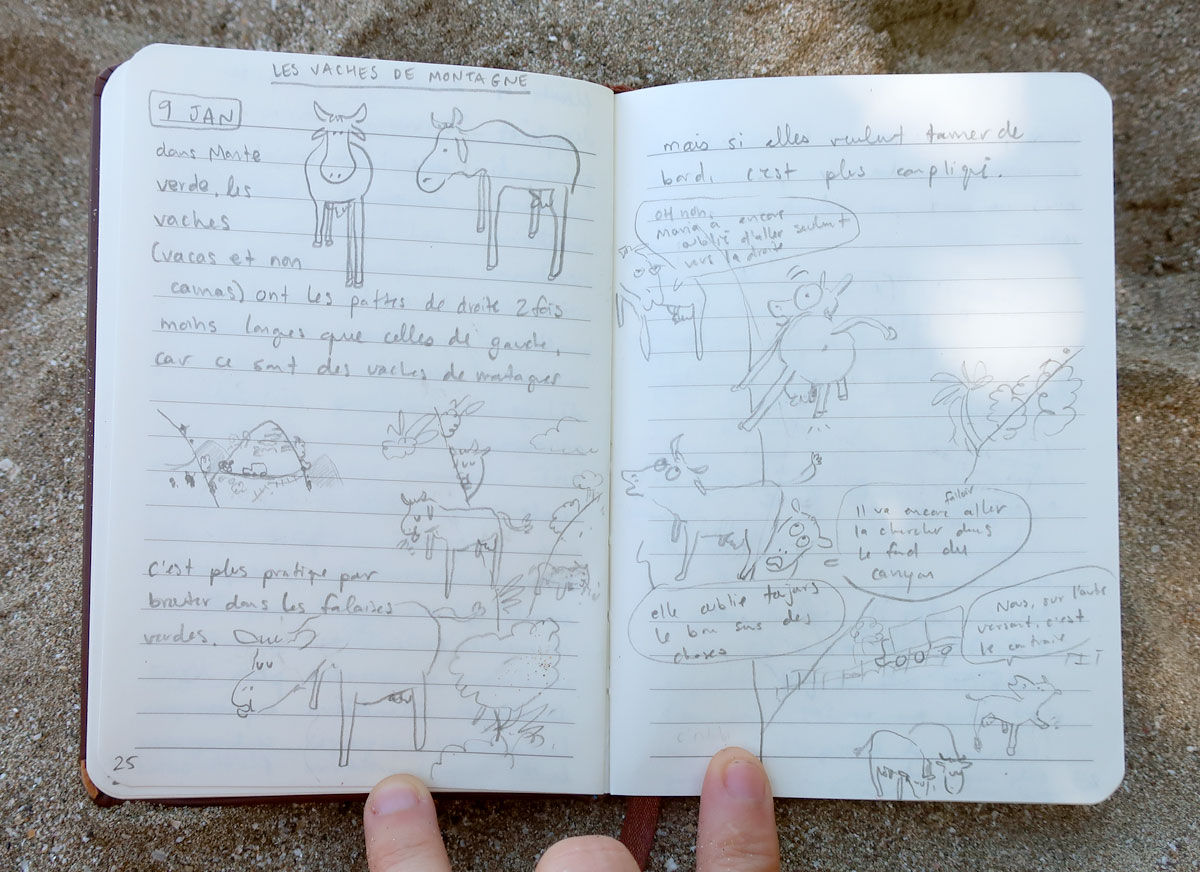 LES VACHES DE MONTAGNE
9 JAN
dans Monte
verde, les
vaches
(vacas et non
camas) ont les pattes de droite 2 fois
moins longues que celles de gauche,
car ce sont des vaches de montagnes
c'est plus pratique pour
brouter dans les falaises
verdes.
25
mais si elles veulent tourner de
bord, c'est plus compliqué.
OH non,
Maria a encore
oublié d'aller seulement
vers la droite
Il va encore falloir aller
la chercher dans
le fond du
canyon
elle oublie toujours
le bon sens des
choses
Nous, sur l'autre
versant, c'est
le contraire